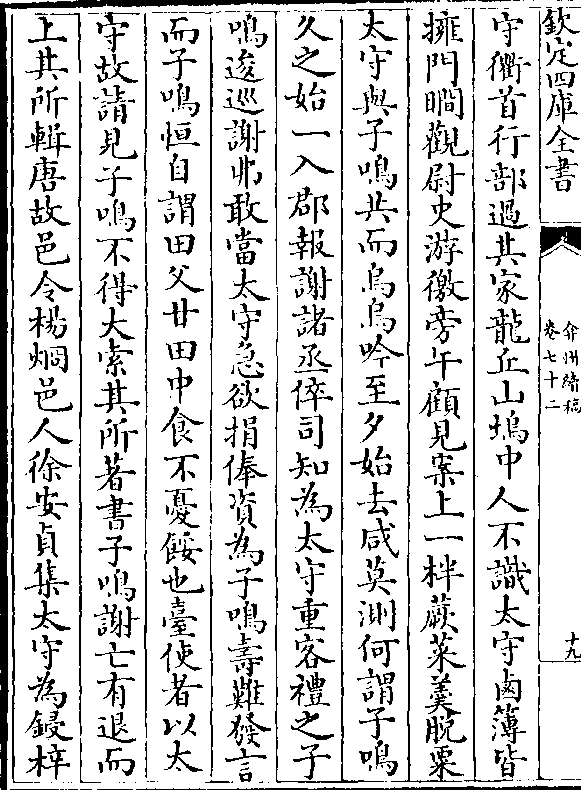 欽定四庫全書
弇州續稿
卷七十二
十九
守衢首行部過其家龍丘山塢中人不識太守鹵簿皆
擁門瞷觀尉史游徼旁午顧見案上一柈蕨菜羮脫粟
太守與子鳴共而烏烏吟至夕始去咸莫測何謂子鳴
久之始一入郡報謝諸丞倅司知為太守重客禮之子
鳴逡巡謝弗敢當太守急欲捐俸資為子鳴壽難發言
而子鳴恒自謂田父廿田中食不憂餒也臺使者以太
守故請見子鳴不得大索其所著書子鳴謝亡有退而
上其所輯唐故邑令楊烱邑人徐安貞集太守為鋟梓